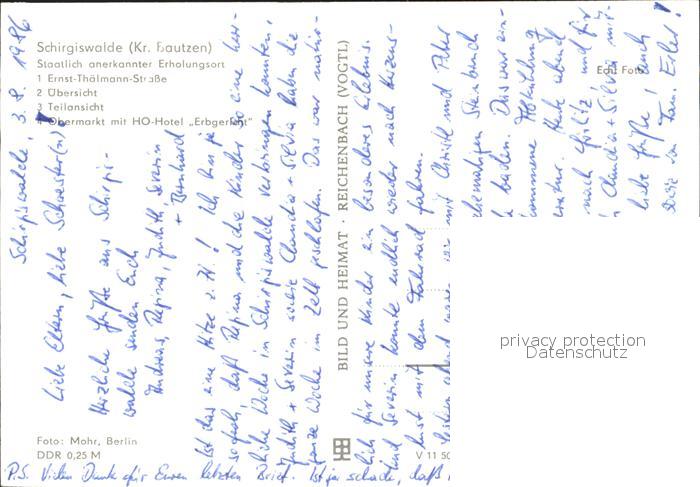 Schirgiswalde (Kr. Bautzen)
Staatlich anerkannter Erholungsort
1 Ernst-Thälmann-Straße
2 Übersicht
3 Teilansicht
4 Obermarkt mit HO-Hotel „Erbgericht“
Schirgiswalde, 3. 8. 1986
Liebe Eltern, liebe Schwester(n)!
Herzliche Grüße aus Schirgis-
walde senden Euch
Andreas, Regina, Judith, Severin
+ Bernhard
Ist das eine Hitze z. Zt.! Ich bin ja
so froh, daß Regina und die Kinder so eine herr-
liche Woche in Schirgiswalde verbringen konnten.
Judith + Severin sowie Claudia + Silvia haben die
ganze Woche im Zelt geschlafen. Das war natür-
lich für unsere Kinder ein besonderes Erlebnis.
Und Severin konnte endlich wieder nach Herzens-
lust mit dem Fahrrad fahren.
mit Christl und Peter
ehemaligen Steinbruch
baden. Das war ein-
kommene Abkühlung
Heute abend
nach Görlitz und für
Claudia + Silvia mit.
liebe Grüße! auch
sowie von Fam. Erler!
P.S. Vielen Dank für Euren letzten Brief. Ist ja schade, daß
BILD UND HEIMAT · REICHENBACH (VOGTL)
Echt Foto
Foto: Mohr, Berlin
DDR 0,25 M
V 11 50
privacy protection
Datenschutz